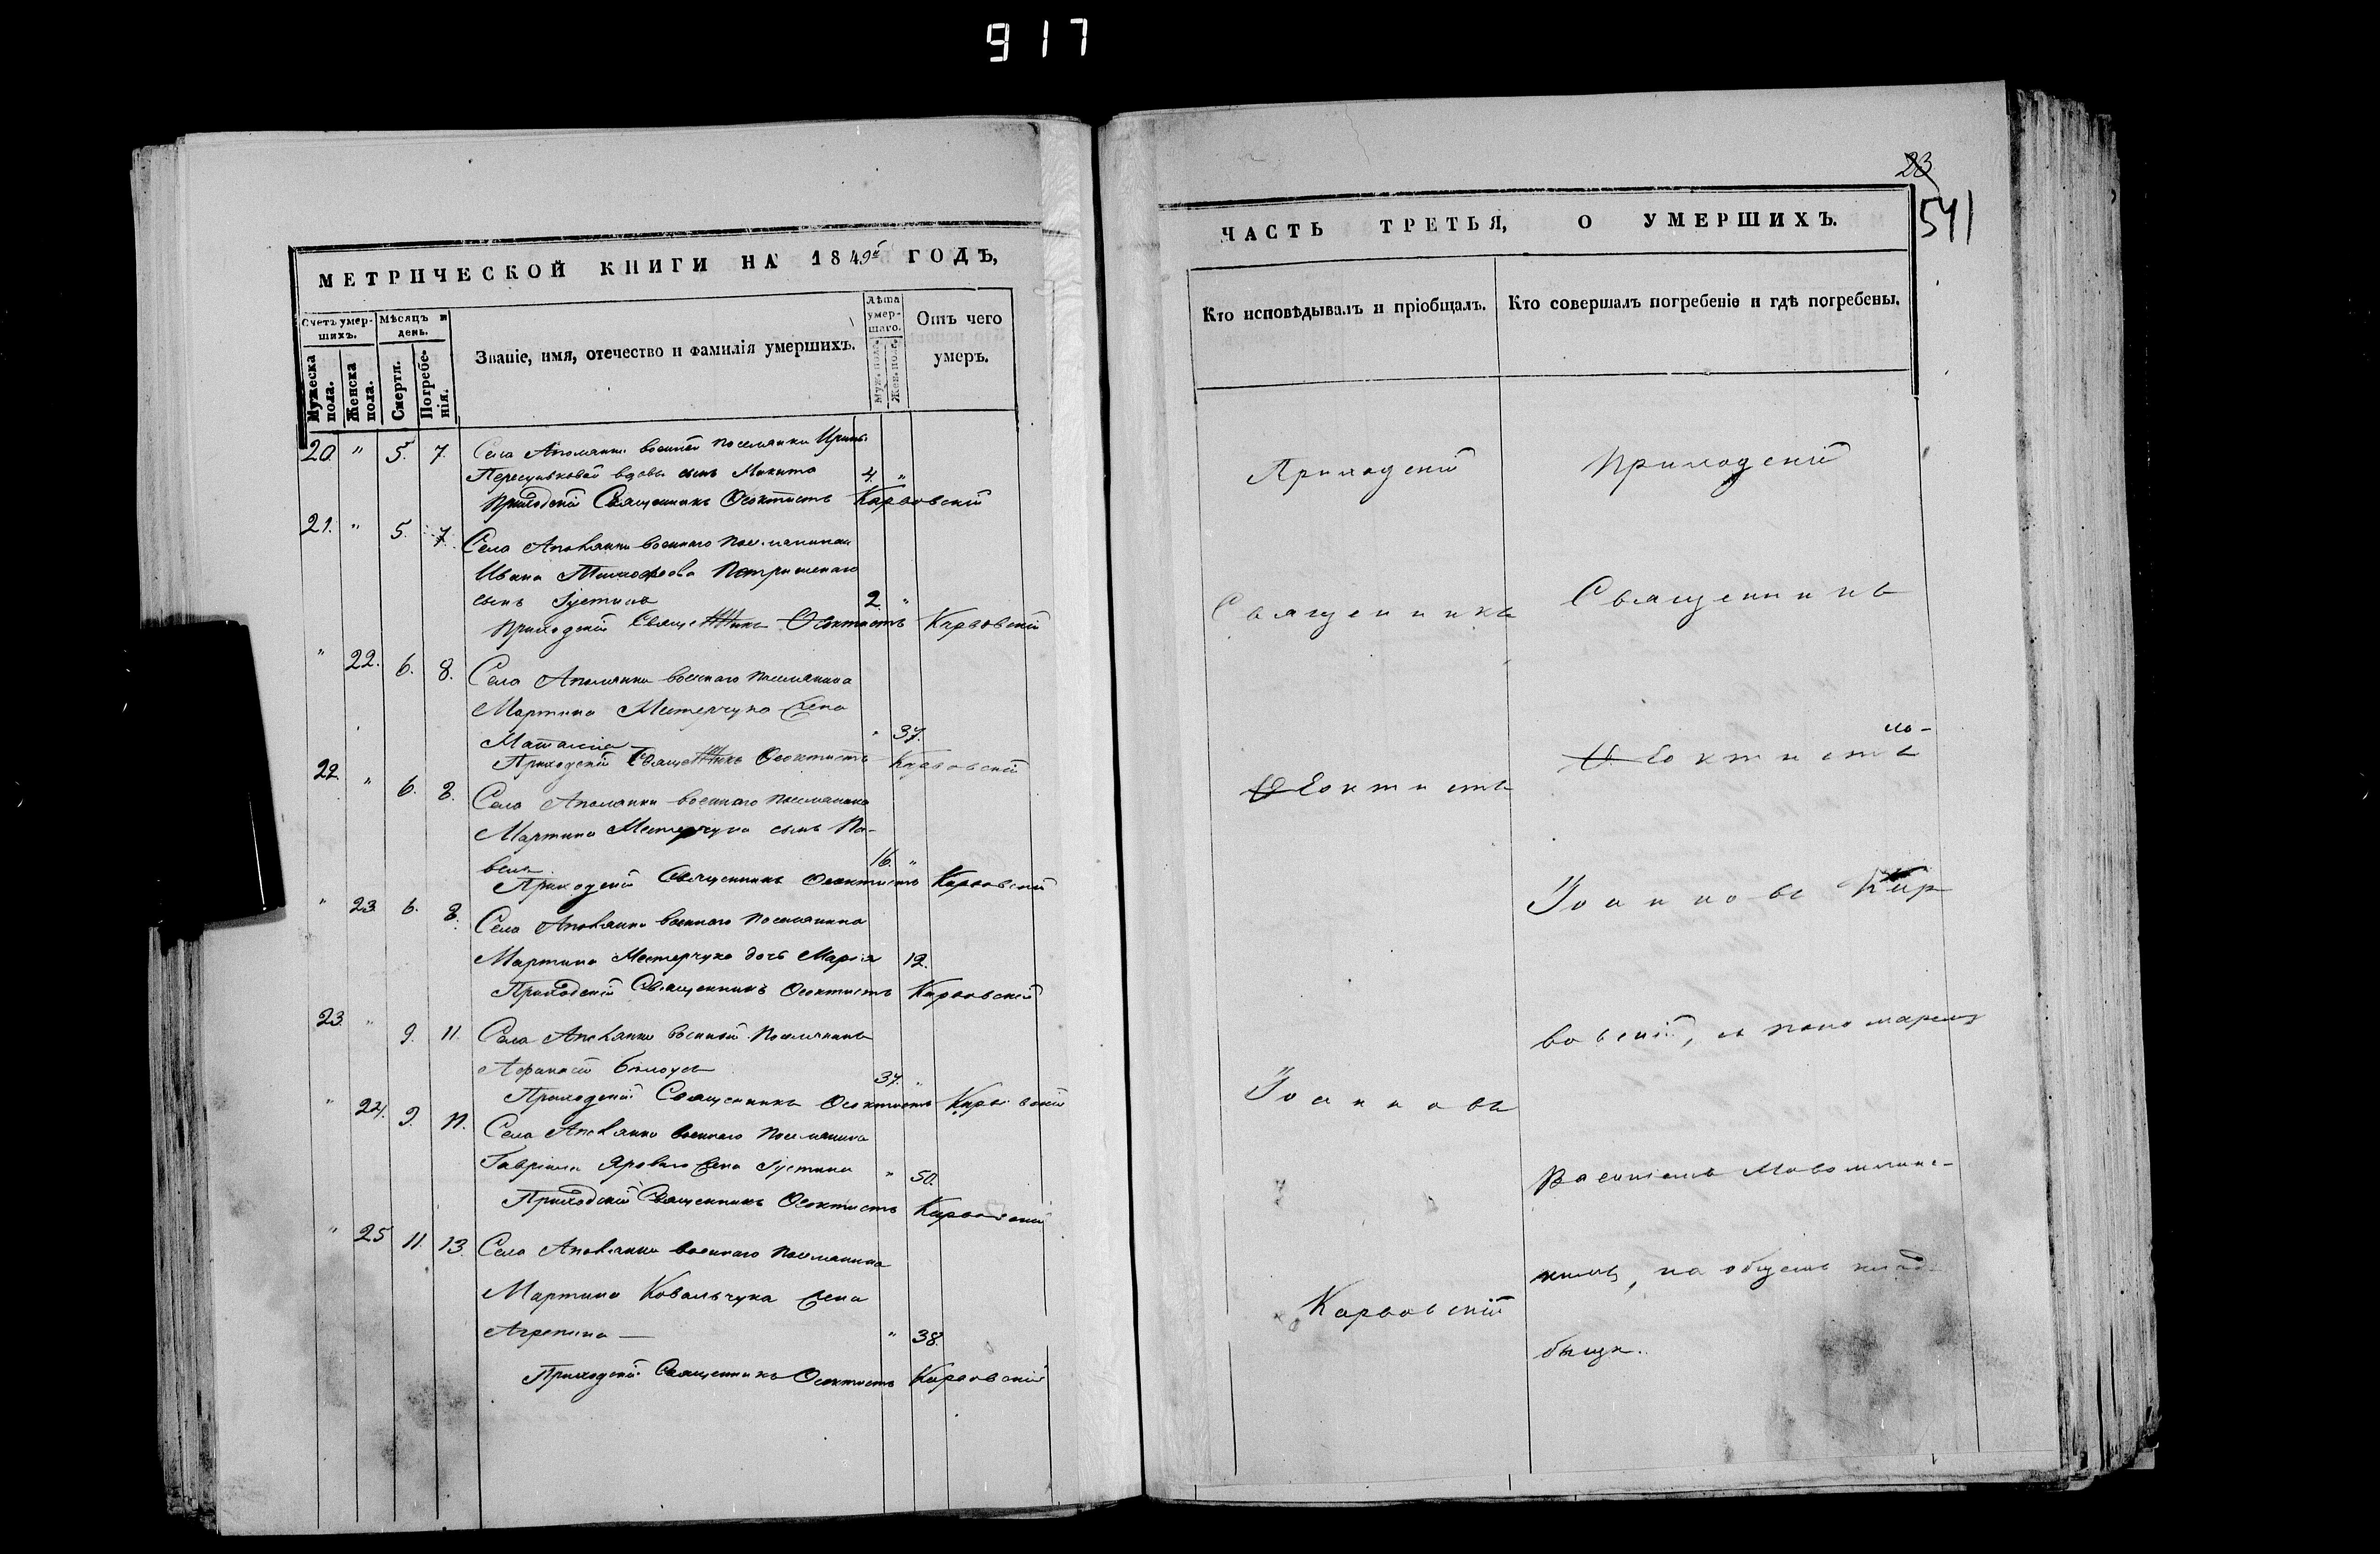 917
МЕТРИЧЕСКОЙ КНИГИ НА 1849й ГОДЪ,
Счетъ умершихъ.
Мужеска пола.
Женска пола.
Мѣсяцъ и день.
Смерти.
Погребенія.
Званіе, имя, отечество и фамилія умершихъ.
Лѣта умершаго.
Муж. пола.
Жен. пола.
Отъ чего умеръ.
20. " 5. 7. Села Аполянки военной поселянки Ирины
вдовы сынъ Микита 4. "
Приходскій Священникъ Ѳеоктистъ Карвовскій
21. " 5. 7. Села Аполянки военнаго поселянина
Ивана Тимофѣева
сынъ Іустинъ 2. "
Приходскій Священникъ Ѳеоктистъ Карвовскій
" 22. 6. 8. Села Аполянки военнаго поселянина
Мартина Местерчука жена
Наталія " 37.
Приходскій Священникъ Ѳеоктистъ Карвовскій
22. " 6. 8. Села Аполянки военнаго поселянина
Мартина Местерчука сынъ Па-
велъ 16. "
Приходскій Священникъ Ѳеоктистъ Карвовскій
" 23. 6. 8. Села Аполянки военнаго поселянина
Мартина Местерчука дочь Марія 12.
Приходскій Священникъ Ѳеоктистъ Карвовскій
23. " 9. 11. Села Аполянки военный поселянинъ
Афанасій Билоусъ 37. "
Приходскій Священникъ Ѳеоктистъ Карвовскій
" 24. 9. 11. Села Аполянки военнаго поселянина
Гавріила Яроваго жена Іустина " 50.
Приходскій Священникъ Ѳеоктистъ Карвовскій
" 25 11. 13. Села Аполянки военнаго поселянина
Мартина Ковальчука жена
Агрепина — " 38.
Приходскій Священникъ Ѳеоктистъ Карвовскій
23
541
ЧАСТЬ ТРЕТЬЯ, О УМЕРШИХЪ.
Кто исповѣдывалъ и пріобщалъ.
Кто совершалъ погребеніе и гдѣ погребены.
Приходскій
Священникъ
Ѳеоктистъ
Іоанновъ
Карвовскій
Приходскій
Священникъ
Ѳеоктистъ
Іоанновъ Кар
вовскій, съ пономаремъ
Василіемъ
на общемъ клад
бищѣ.